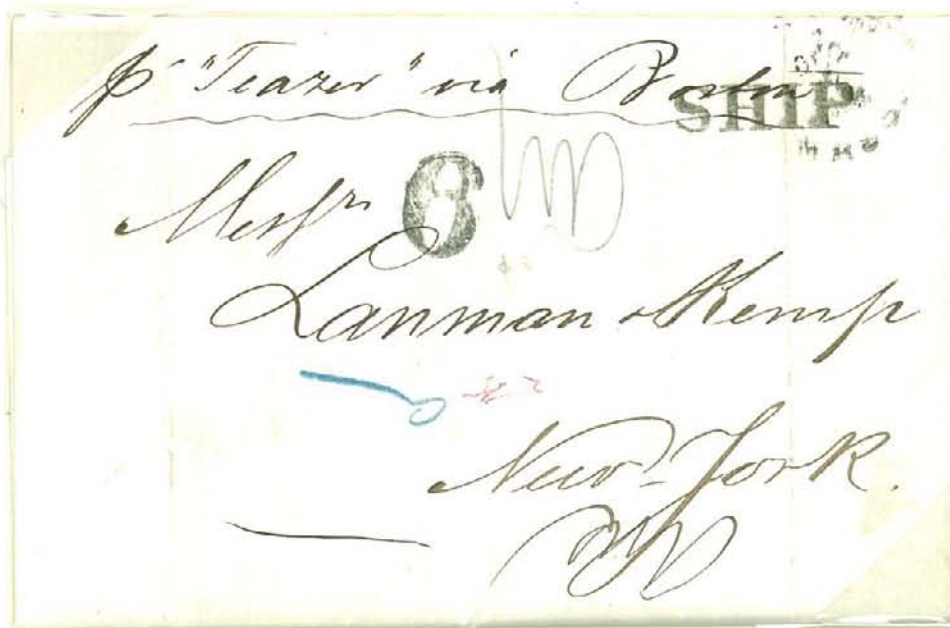 p "Teazer" via Boston
SHIP
Messrs
6
Lanman & Kemp
New-York.